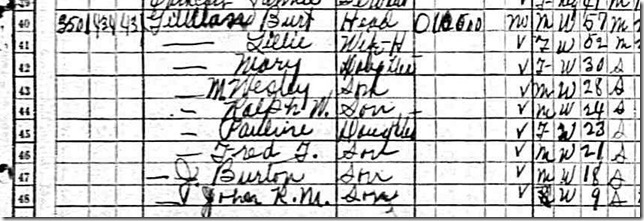 40 3501 434 43 Gillilass Burt Head O 10,000 no M W 57 M
41 — Lillie Wife-H V F W 52 M
42 — Mary Daughter V F W 30 S
43 — M Wesley Son V M W 28 S
44 — Ralph W. Son V M W 24 S
45 — Pauline Daughter V F W 23 S
46 — Fred F. Son V M W 21 S
47 — J. Burton Son V M W 18 S
48 — John R.M. Son V W 9 S